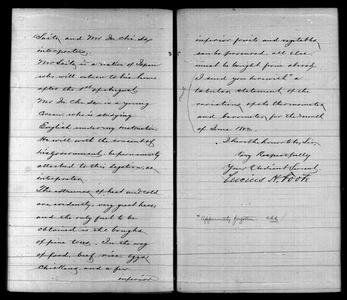 Saito, and Mr In Chi Ho
interpreters,
Mr Saito is a native of Japan
who will return to his home
after the 1st of August,
Mr In Chi Ho is a young
Corean who is studying
English under my instruction.
He will with the consent of
his Government, be permanently
attached to this Legation, as
interpreter.
The extremes of heat and cold
are evidently, very great here,
and the only fuel to be
obtained is the boughs
of pine trees. In the way
of food, beef, rice, eggs,
chickens, and a few
inferior
inferior fruits and vegetables
can be procured, all else
must be brought from abroad.
I send you herewith a
tabular statement of the
variations of the thermometer
and barometer for the month
of June 188
I have the honor to be, Sir,
Very Respectfully
Your Obedient Servant
Lucius H. Foote
Apparently forgotten